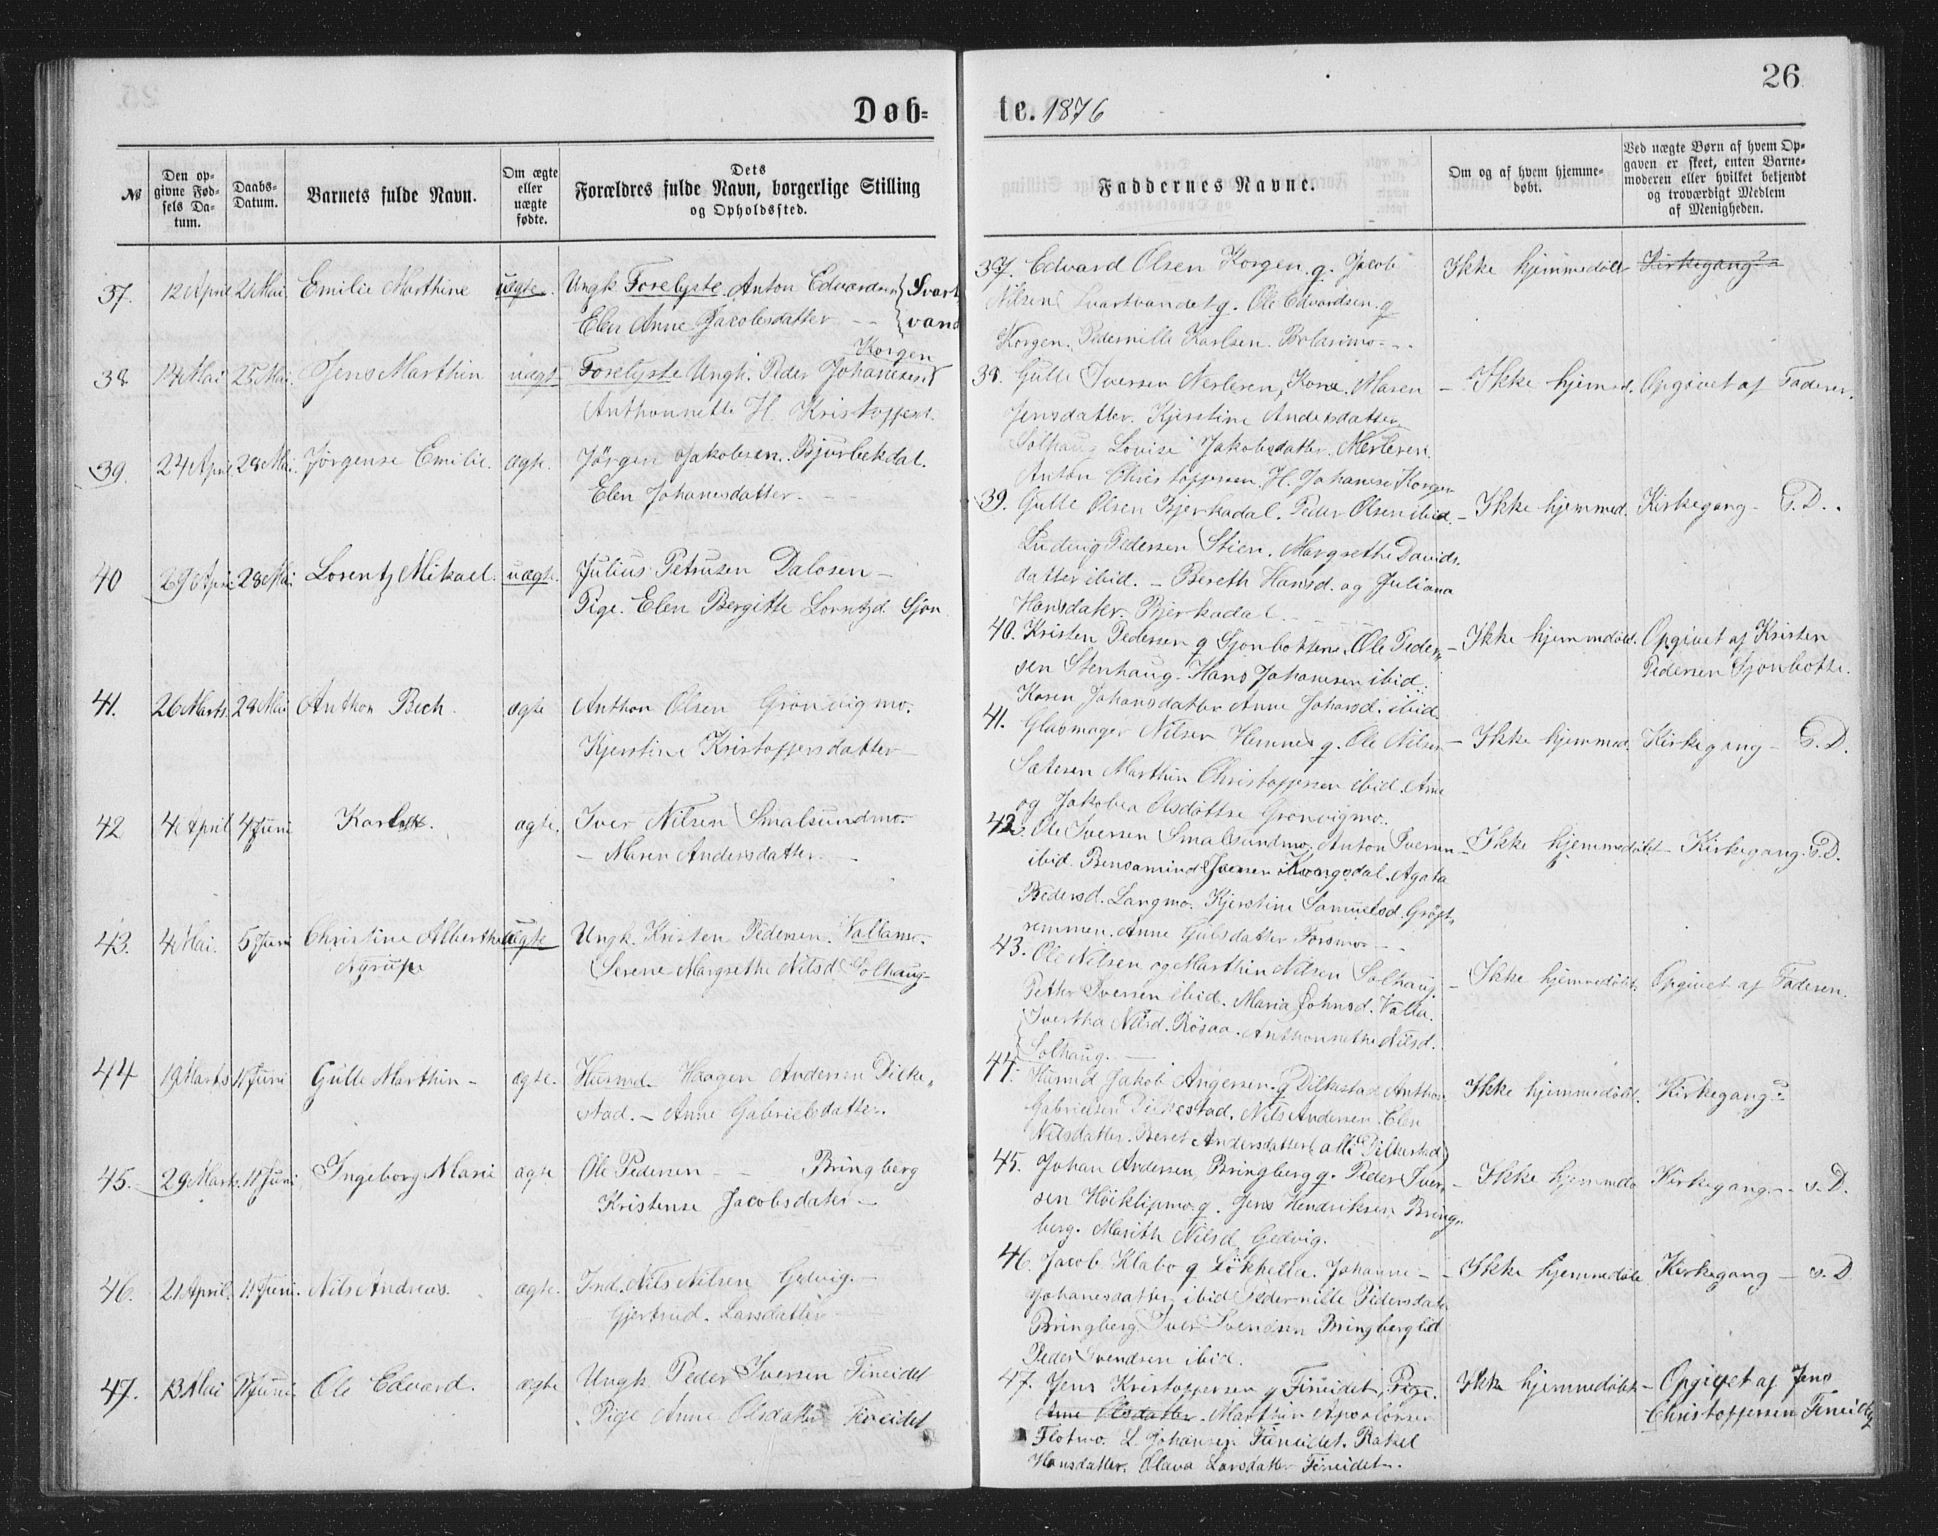 26
Døb=
te. 1876
№
Den op-
givne Fød-
sels Da-
tum.
Daabs-
Datum.
Barnets fulde Navn.
Om ægte
eller
uægte
fødte.
Dets
Forældres fulde Navn, borgerlige Stilling
og Opholdssted.
Faddernes Navne.
Om og af hvem hjemme-
døbt.
Ved uægte Børn af hvem Op-
gaven er skeet, enten Barne-
moderen eller hvilket bekjendt
og troværdigt Medlem
af Menigheden.
37. 12 April 21 Mai Emilie Marthine uægte. Ungk Forelyste Anton Edvardsen Svart
Elen Anne Jacobsdatter -- vand
Korgen
38 14 Mai 25 Mai. Jens Marthin uægt Forelyste Ungk. Peder Johannesen
Anthonnette H. Kristoffers.
39. 24 April 28 Mai. Jørgense Emilie. ægte. Jörgen Jakobsen. Bjurbekdal.
Elen Johanesdatter.
40 29 April 28 Mai. Lorentz Mikael. uægte. Julius Petrusen Dalosen -
Pige. Elen Bergitte Lorntzd. Sjon
41. 26 Marts. 28 Mai Anthon Bech. ægte Anthon Olsen Grönvigmo.
Kjerstine Kristoffersdatter
42 4 April 4 Juni ægte. Iver Nilsen Smalsundmo.
- Maren Andersdatter. -
43. 4 Mai. 5 Juni Christine Alberthea uægte Ungk. Kristen Pedersen. Vallamo.
Nyrup Serene Margrethe Nilsd. Solhaug-
44 19 Marts 11 Juni Gulle Marthin - ægte. Husmd. Haagen Andersen Dilke„
stad. - Anne Gabrielsdatter.
45. 29 Marts. 11 Juni Ingeborg Marie ægte Ole Pedersen - - Bringberg
Kristense Jacobsdater -
46. 21 April. 11 Juni. Nils Andreas. ægte. Ind. Nils Nilsen Gedvig. -
Gjertrud. Larsdatter
47. 13 Mai 11 Juni Ole Edvard. ægte Ungk. Peder Iversen Fineidet
Pige Anne Olsdatter Fineidet
37. Edvard Olsen Korgen. g. Jacob Ikke hjemmedøbt Kirkegang?
Nilsen Svartvandet g. Ole Edvardsen g
Korgen. Pedernille Karlsen.
38. Gulle Iversen Nerleren, Kone. Maren - Ikke hjemd. Opgivet af Faderen.
Jensdatter. Kjerstine Andersdatter
Solhaug Lovise Jakobsdatter. Nerleren.
Anton Christoffersen. H. Johanse Korgen
39. Gulle Olsen Bjerkadal. Peder Olsen ibid. - Ikke hjemmed. Kirkegang - S.D.
Ludvig Pedersen Stien. Margrethe Davids„
datter ibid. - Bereth Hansd. og Juliana
Hansdater. Bjerkadal
40. Kristen Pedersen g Sjonbotten. Ole Peder„ - Ikke hjemmedøbt. Opgivet af Kristen
sen Stenhaug. Hans Johannesen ibid. Pedersen Sjonbotte.
Karen Johansdatter Anne Johansd. ibid.
41. Glasmager Nilsen Hemnes g. Ole Nilsen - Ikke hjemmed. Kirkegang - S.D.
Marthin Christoffersen ibid. Ane
og Jakobea Olsdattre Gronvigmo.
42. Ole Iversen Smalsundmo. Anton Iversen - Ikke hjemmedøbt - Kirkegang. S.D.
ibid. Bensamin Iversen Kongsdal. Agata
Pedersd. Langmo. Kjerstine Samuelsd. Grøft„
remmen. Anne Gulsdatter Forsmo -
43. Ole Nilsen og Marthin Nilsen Solhaug. - Ikke hjemmedøbt. Opgivet af Faderen.
Petter Iversen ibid. Maria Johnsd. Valla.
Ivertha Nilsd. Røsaa. Anthonnethe Nilsd.
Solhaug. -
44. Husmd Jakob Angersen. g Dilkestad Anthon Ikke hjemmedøbt. Kirkegang?
Gabrielsen Dilkestad. Nils Andersen. Elen
Nilsdatter. Beret Andersdatter (alle Dilkestad)
45. Johan Andersen, Bringberg g. Peder Iver„ - Ikke hjemmedø Kirkegang. - s.D.
sen Höiklipmo. g. Jens Hendriksen Bring„
berg. Marith Nilsd. Gedvig.
46. Jacob Klabo g Løkhella. Johanne - - Ikke hjemmedøbt Kirkegang - s.D
Johanesdatter ibid Pedernille Pedersdatr
Bringberg. Iver Svendsen Bringberglid
Peder Svendsen ibid.
47. Jens Kristoffersen g Fineidet, Pige. Ikke hjemmedøbt - Opgivet af Jens
Anne Olsdatter. Marthin Christoffersen Fineidet
Flotmo. L. Johansen Fineidet. Rakel
Hansdatter. Olava Larsdatter Fineidet.